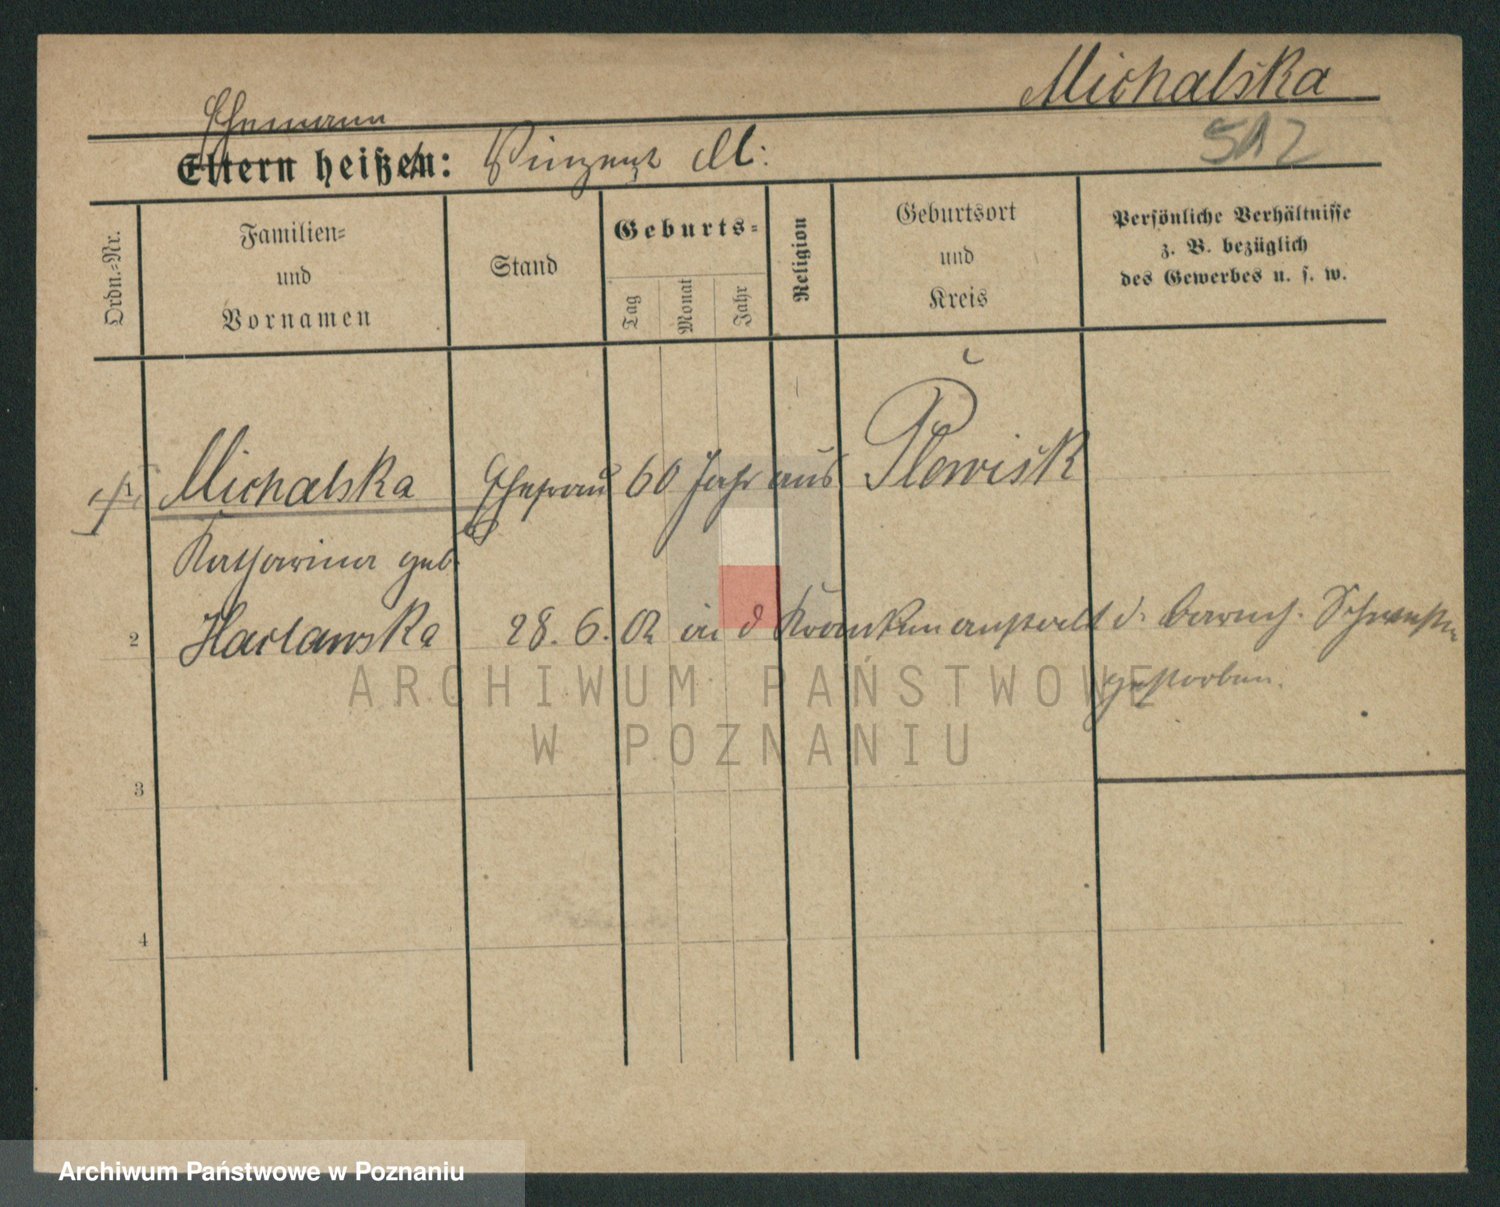 Michalska
512
Ehemann
Eltern heißen: Vinzent M.
Ordn.-Nr.
Familien-
und
Vornamen
Stand
Geburts-
Tag
Monat
Jahr
Religion
Geburtsort
und
Kreis
Persönliche Verhältnisse
z. B. bezüglich
des Gewerbes u. s. w.
1 Michalska Ehefrau 60 Jahr aus Plewisk
Katharina geb.
2 Harlawska 28. 6. 02 in d Krankenanstalt d. barmh. Schwestern
gestorben.
3
4
ARCHIWUM PAŃSTWOWE
W POZNANIU
Archiwum Państwowe w Poznaniu